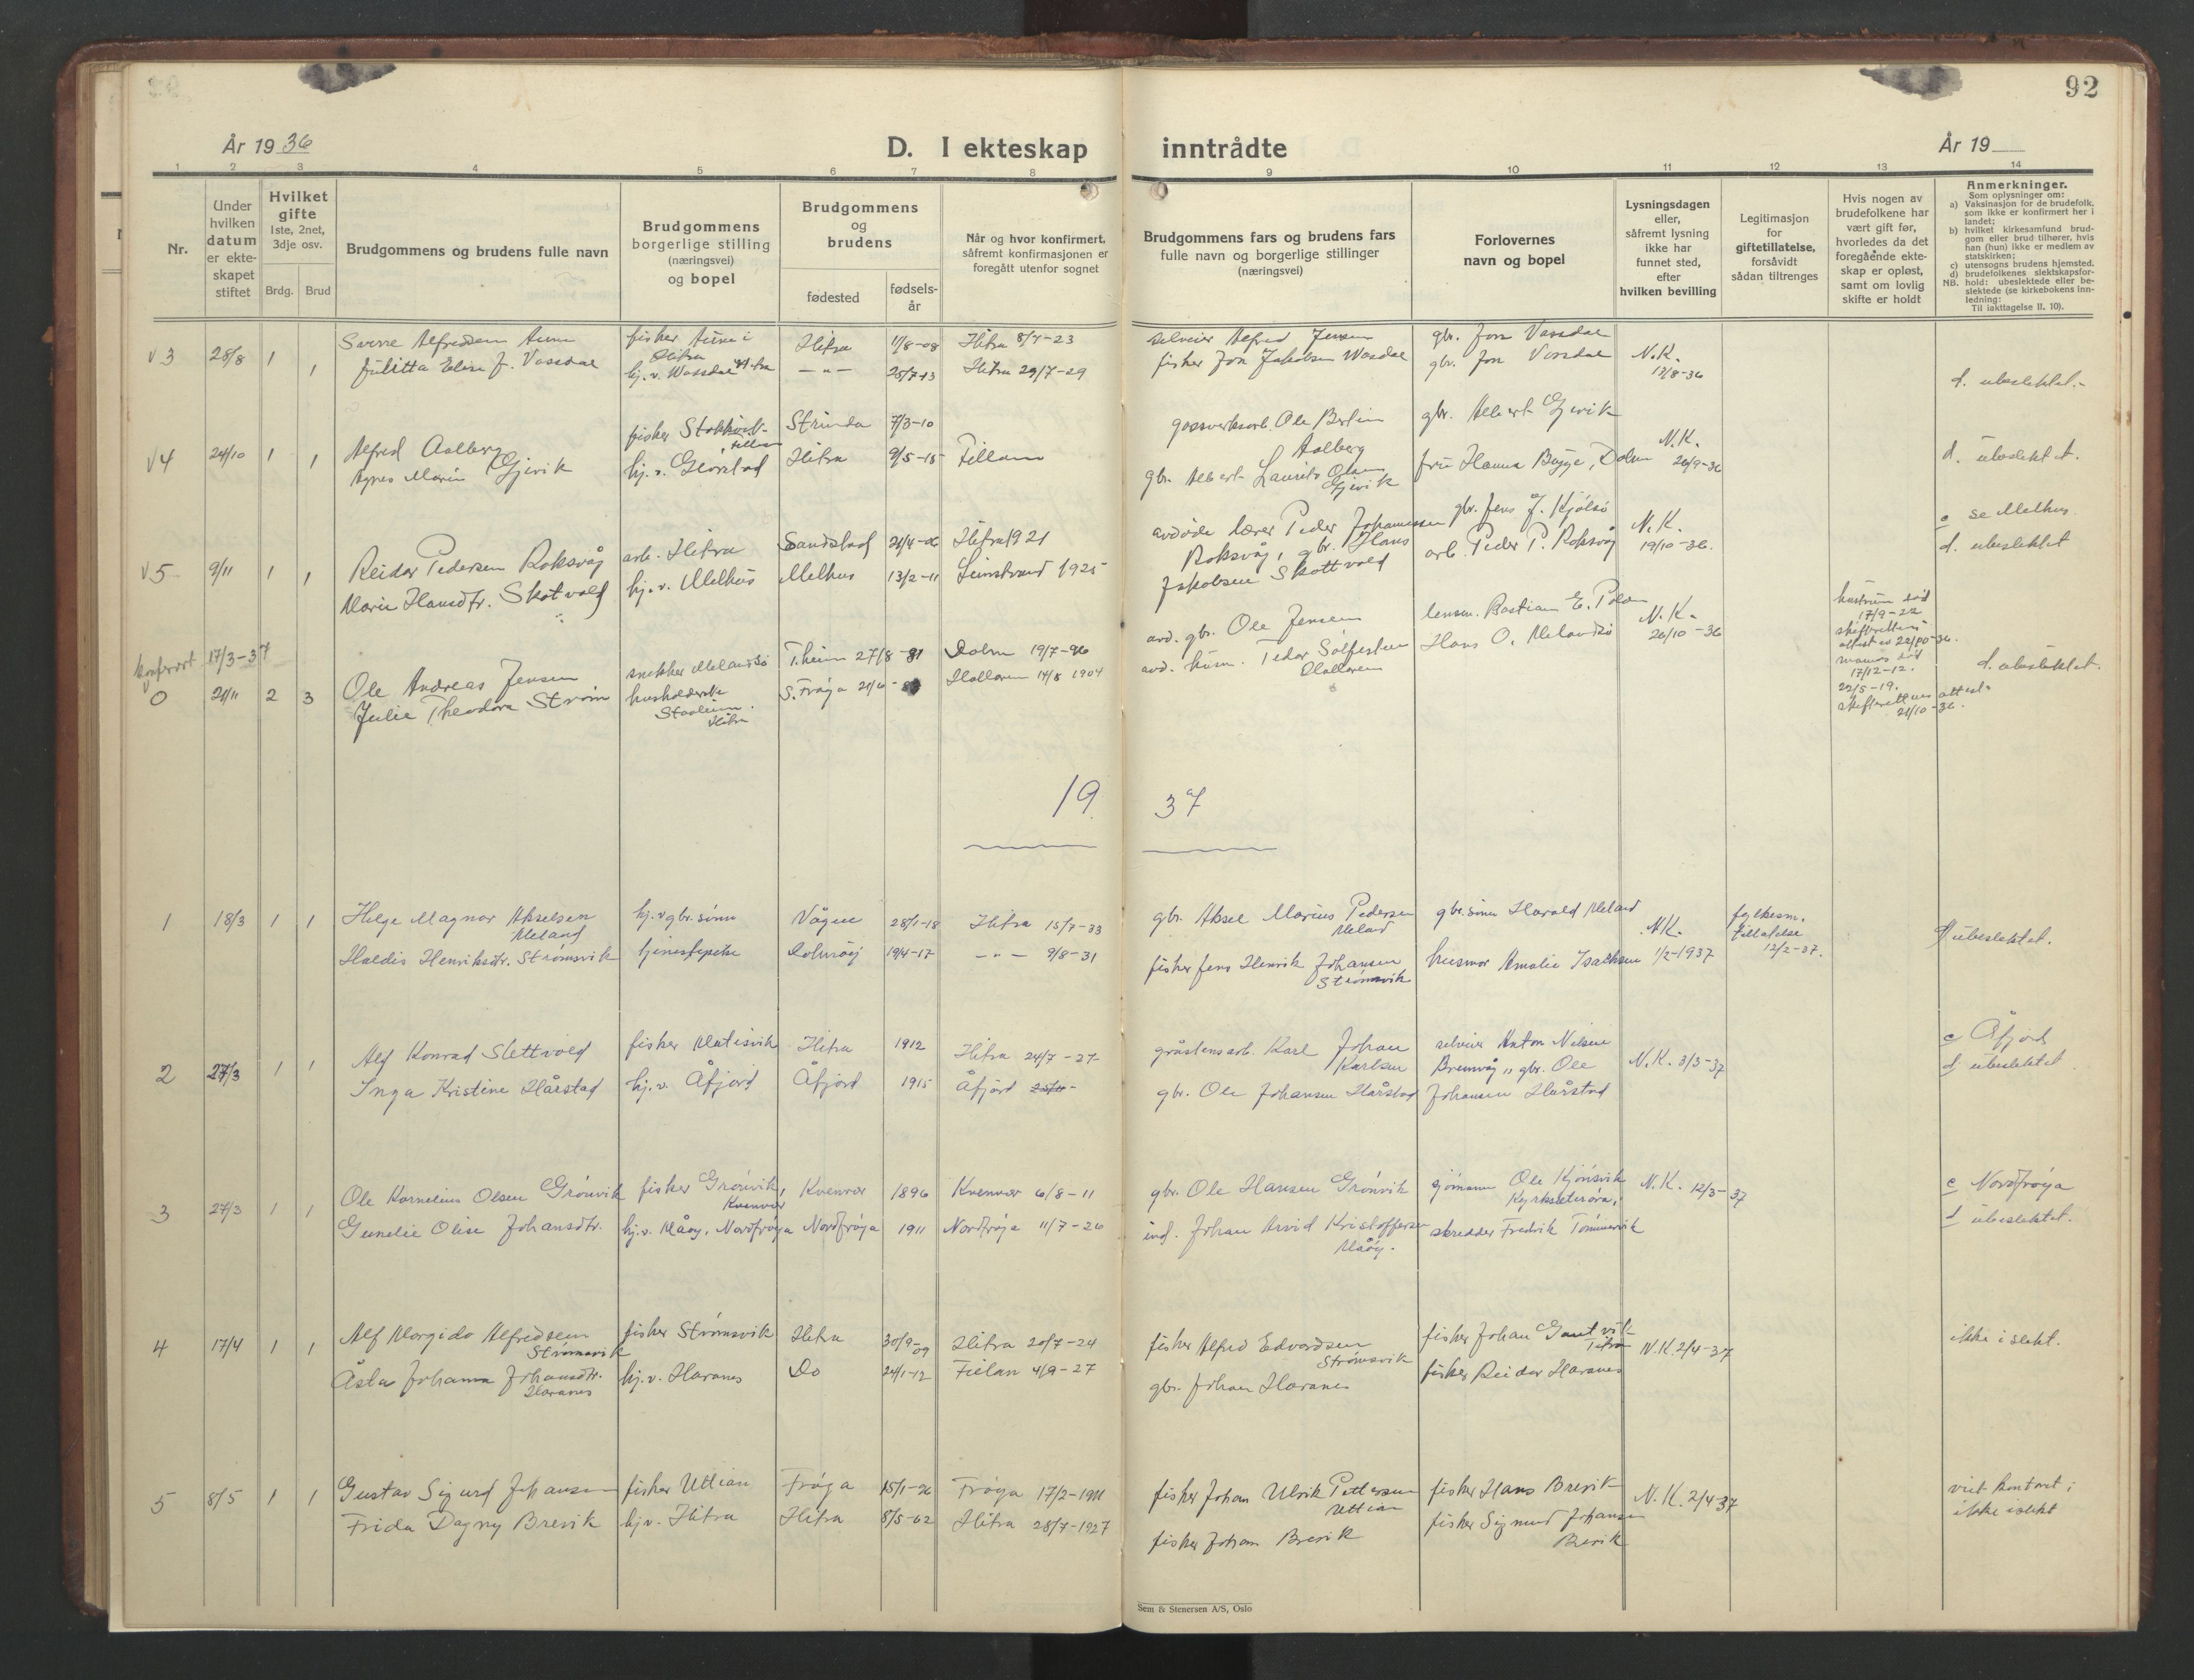 92
År 1936
D. I ekteskap inntrådte
År 19
1 2 3 4 5 6 7 8 9 10 11 12 13 14
Nr.
Under hvilken datum er ekte-skapet stiftet
Hvilket gifte 1ste, 2net, 3dje osv.
Brdg. Brud
Brudgommens og brudens fulle navn
Brudgommens borgerlige stilling (næringsvei) og bopel
Brudgommens og brudens
fødested
fødsels-år
Når og hvor konfirmert, såfremt konfirmasjonen er foregått utenfor sognet
Brudgommens fars og brudens fars fulle navn og borgerlige stillinger (næringsvei)
Forlovernes navn og bopel
Lysningsdagen eller, såfremt lysning ikke har funnet sted, efter hvilken bevilling
Legitimasjon for giftetillatelse, forsåvidt sådan tiltrenges
Hvis nogen av brudefolkene har vært gift før, hvorledes da det foregående ekte-skap er opløst, samt om lovlig skifte er holdt
Anmerkninger.
Som oplysninger om:
a) Vaksinasjon for de brudefolk, som ikke er konfirmert her i landet;
b) hvilket kirkesamfund brud-gom eller brud tilhører, hvis han (hun) ikke er medlem av statskirken;
c) utensogns brudens hjemsted.
d) brudefolkenes slektskapsfor-hold: ubeslektede eller be-slektede (se kirkebokens inn-ledning:
NB.
Til iakttagelse II. 10).
v 3 28/8 1 Sverre Alfredsen Aune fisker Aune i Hitra Hitra 11/8-08 Hitra 8/7-23 selveier Alfred Jensen gbr. Jon Vassdal
1 Julitta Elise J. Vassdal hj. v. Wassdal Hitra -"- 25/7-13 Hitra 29/7-29 fisker Jon Jakobsen Wasdal gbr. Jon Vassdal N.K. 12/8-36 d. ubeslektet.-
v4 24/10 1 Alfred Aalberg fisker Strinda 7/3-10 gassverksarb. Ole Bertin Aalberg gbr. Albert Gjevik N.K. 26/9-36
1 Agnes Marin Gjevik hj. v. Hitra 9/5-15 Fillan gbr. Albert Laurits Olsen Gjevik fru Hanna Bugge, Dolm d. ubeslektet.
v5 9/11 1 Reidar Pedersen Roksvåg arb. Hitra Sandstad 21/4-06 Hitra 1921 avdøde lærer Peder Johannessen Roksvåg, gbr. Hans gbr. Jens J. Kjølsø N.K. 19/10-36. c se Melhus
1 Marie Hansdtr. Skotvold hj. v. Melhus Melhus 13/2-11 Leinstrand 1925 Jakobsen Skottvold arb. Peder P. Roksvåg d. ubeslektet
konferert 17/3-37
0 21/11 2 Ole Andreas Jensen snekker Melandsø T.heim 27/8-81 Dolm 19/7-96 avd. gbr. Ole Jensen lensm. Bastian E. N.K. 26/10-36 hustrum død 17/9-22 skifterettens attest av 22/10-36.
3 Julie Theodora Strøm husholderske Hitra S. Frøya Hallaren 14/8 1904 avd. husm. Hallaren Hans O. Melandsø manns død 17/12-12. 22/5-19. skifterettens attest. 21/10-36. d. ubeslektet.
19 37
1 18/3 1 1 Helge Magnar Akselsen Meland hj. v gbr. sønn Vågen 28/1-18 Hitra 15/7-33 gbr. Aksel Marius Pedersen Meland gbr. sønn Harald Meland N.K. 1/2-1937 fylkesm. tillatelse 12/2-37. d ubeslektet.
Haldis Henriksdtr. Strømsvik tjenestepike Dolmøy 19/4-17 -"- 9/8-31 fisker Jens Henrik Johansen Strømsvik husmor Amalie Isaksen
2 27/3 1 1 Alf Konrad Slettvold fisker Hitra 1912 Hitra 24/7-27 gråstensarb. Karl Johan Karlsen selveier Anton Nilsen N.K. 3/3-37 c Åfjord
Inga Kristine Hårstad hj. v. Åfjord Åfjord 1915 Åfjord gbr. Ole Johansen Hårstad gbr. Ole Johansen Hårstad d ubeslektet
3 27/3 1 1 Ole Kornelius Olsen Grønvik fisker Grønvik, Kvenvær Kvenvær 1896 Kvenvær 6/8-11 gbr. Ole Hansen Grønvik sjømann Ole Kjønsvik Kyrksæterøra, N.K. 12/3-37 c Nordfrøya
Gunelie Olise Johansdtr. hj. v. Måøy, Nordfrøya Nordfrøya 1911 Nordfrøya 11/7-26 ind. Johan Arvid Kristoffersen Måøy. skredder Fredrik Tømmervik d ubeslektet.
4 17/4 1 1 Alf Margido Alfredsen Strømsvik fisker Strømsvik Hitra 30/9-09 Hitra 20/7-24 fisker Alfred Edvardsen Strømsvik fisker Johan N.K. 2/4-37 ikke i slekt.
Åsta Johanna Johansdtr. Haranes hj. v. Haranes Do 24/1-12 Fillan 4/9-27 gbr. Johan Haranes fisker Reidar Haranes
5 8/5 1 1 Gustav Sigurd Johansen fisker Uttian Frøya 15/1-26 Frøya 17/2-1921 fisker Johan Ulrik Pettersen Uttian fisker Hans Brevik N.K. 2/4 37
Frida Dagny Brevik hj v. Hitra Hitra 8/5-02 Hitra 28/7-1927 fisker Johan Brevik fisker Sigmund Johansen Brevik ikke i slekt
Sem & Stenersen A/S, Oslo